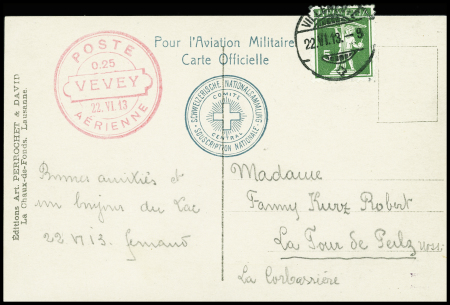 Pour l'Aviation Militaire
Carte Officielle
POSTE
0.25
VEVEY
22.VI.13
AÉRIENNE
22.VI.13.-8
5
SCHWEIZERISCHE NATIONALSAMMLUNG
COMITÉ
CENTRAL
SOUSCRIPTION NATIONALE
Editions Art. PERROCHET & DAVID
La Chaux-de-Fonds, Lausanne.
Bonnes amitiés et
un bonjour du Lac
22 VI 13. Fernand
Madame
Fanny Kurz Robert
La Tour de Peilz
La Corbassière